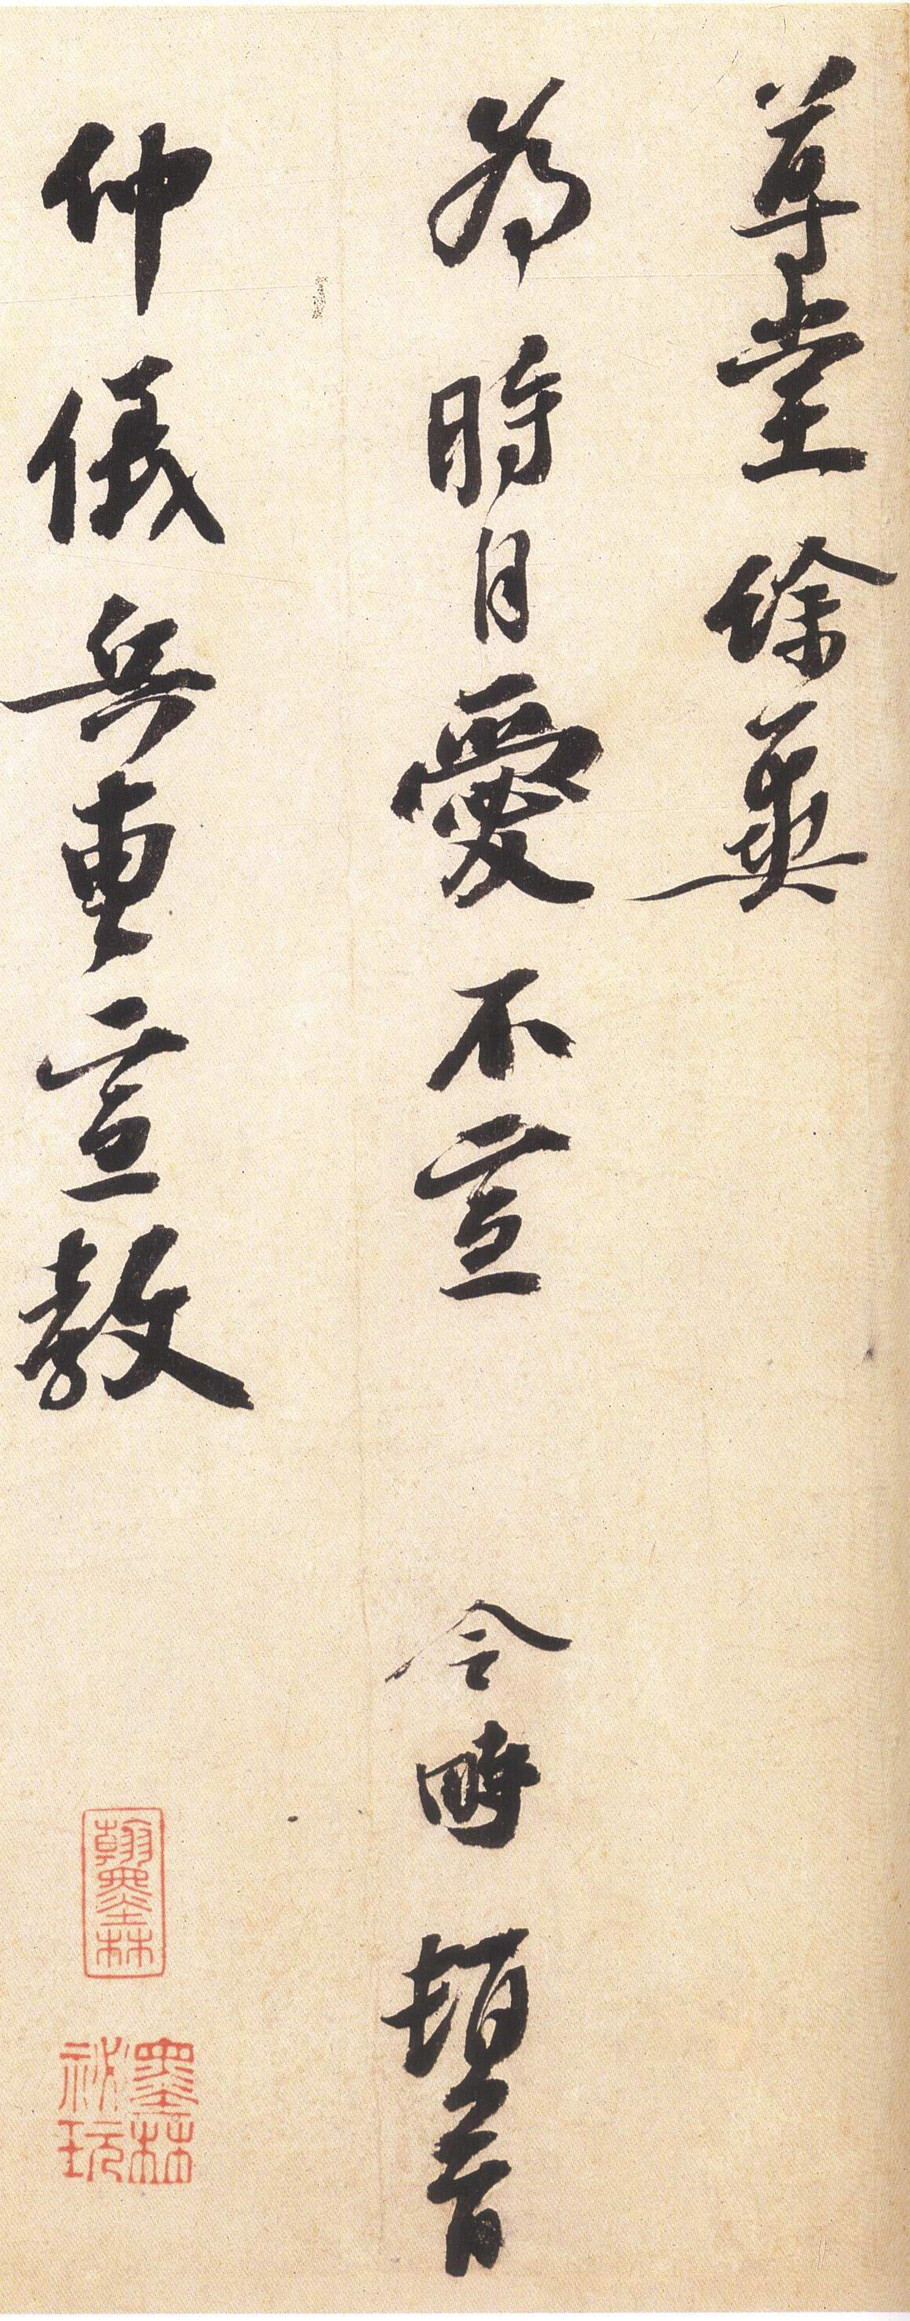 尊堂餘冀
为時自愛不宣　令時頓首
仲儀兵曹宣教
翰墨林
墨林祕玩